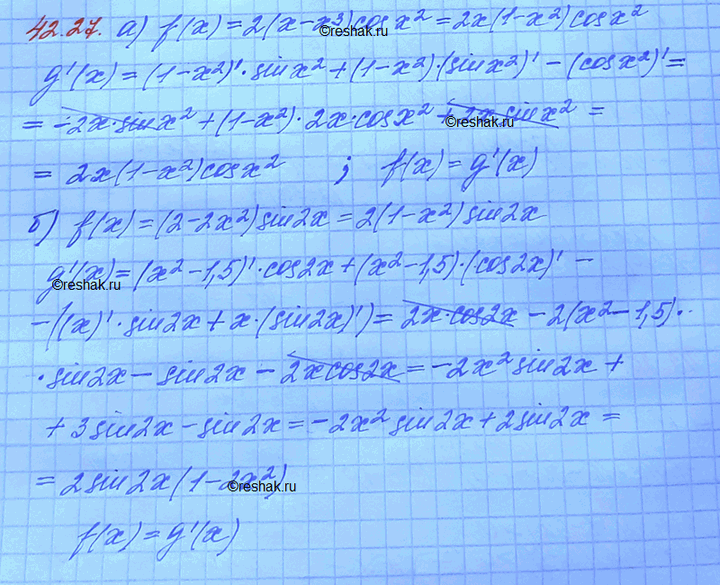 42.27. а) f(x) = 2(x-x³)cosx² = 2x(1-x²)cosx²
©reshak.ru
g'(x) = (1-x²)'·sinx² + (1-x²)·(sinx²)' - (cosx²)' =
= -2x·sinx² + (1-x²)·2x·cosx² + 2x sinx² =
©reshak.ru
= 2x(1-x²)cosx² ; f(x) = g'(x)
б) f(x) = (2-2x²)sin2x = 2(1-x²)sin2x
g'(x) = (x²-1,5)'·cos2x + (x²-1,5)·(cos2x)' -
©reshak.ru
- ((x)'·sin2x + x·(sin2x)') = 2x·cos2x - 2(x²-1,5)·
·sin2x - sin2x - 2xcos2x = -2x² sin2x +
+ 3sin2x - sin2x = -2x² sin2x + 2sin2x =
= 2sin2x(1-2x²)
©reshak.ru
f(x) = g'(x)